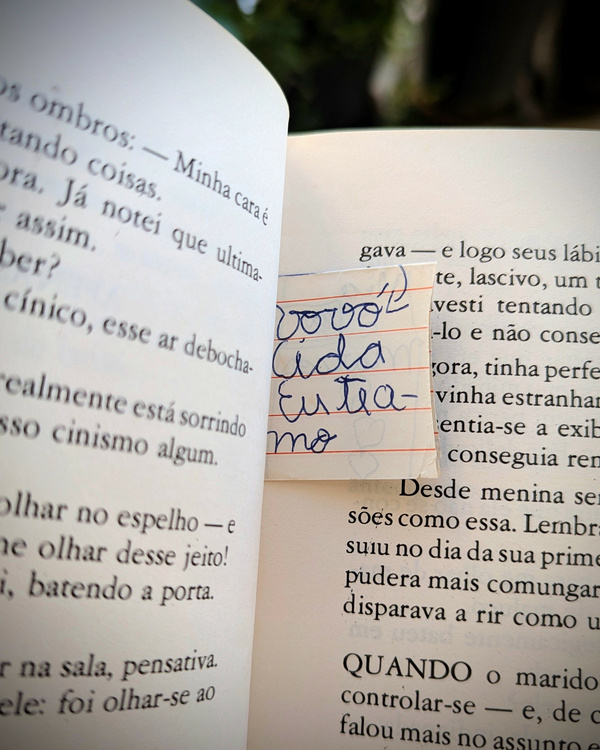 os ombros: — Minha cara é
tando coisas.
ora. Já notei que ultima-
assim.
ber?
cínico, esse ar debocha-
realmente está sorrindo
sso cinismo algum.
olhar no espelho — e
he olhar desse jeito!
i, batendo a porta.
r na sala, pensativa.
ele: foi olhar-se ao
vovó
Cida
Eu tea-
mo
gava — e logo seus lábi
te, lascivo, um t
vesti tentando
-lo e não conse
gora, tinha perfe
vinha estranhar
entia-se a exib
conseguia ren
Desde menina se
sões como essa. Lembra
suiu no dia da sua prime
pudera mais comungar
disparava a rir como u
QUANDO o marido
controlar-se — e, de c
falou mais no assunto